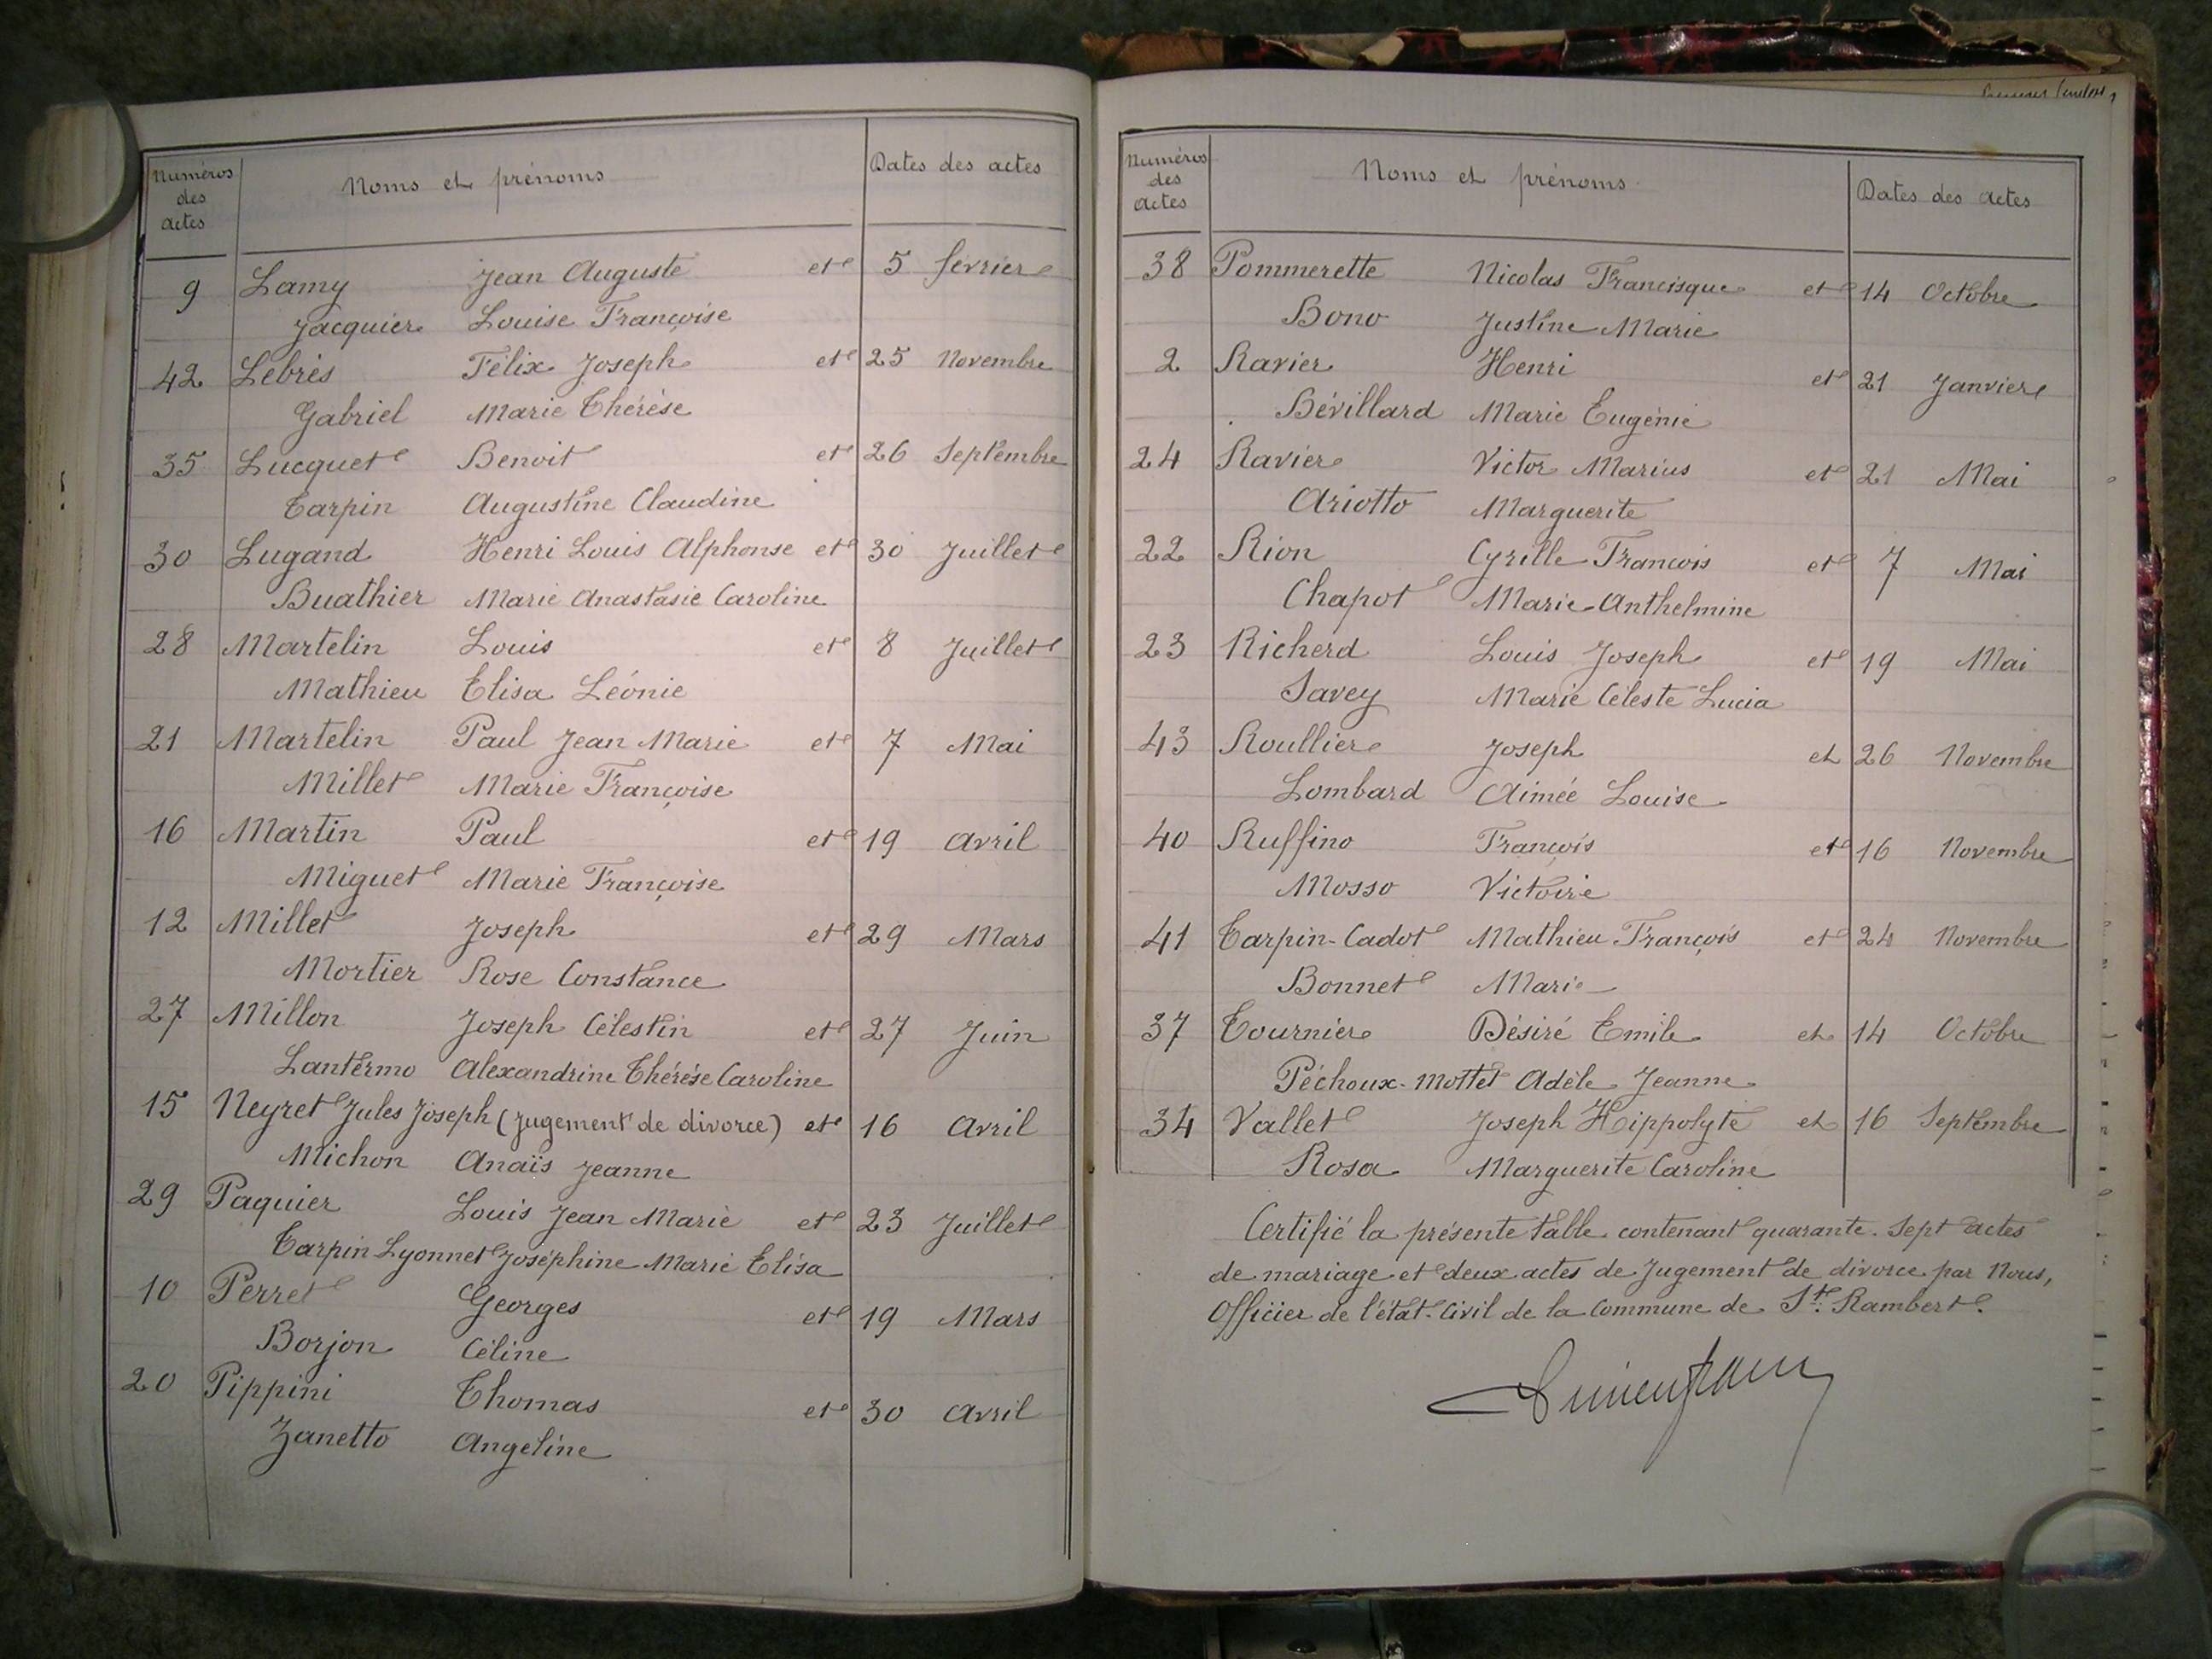 Numéros
des
actes
Noms et prénoms
Dates des actes
9 Lamy Jean Auguste et 5 février
Jacquier Louise Françoise
42 Lebrès Félix Joseph et 25 Novembre
Gabriel Marie Thérèse
35 Lucquet Benoit et 26 Septembre
Tarpin Augustine Claudine
30 Lugand Henri Louis Alphonse et 30 Juillet
Buathier Marie Anastasie Caroline
28 Martelin Louis et 8 Juillet
Mathieu Elisa Léonie
21 Martelin Paul Jean Marie et 7 Mai
Millet Marie Françoise
16 Martin Paul et 19 Avril
Miguet Marie Françoise
12 Millet Joseph et 29 Mars
Mortier Rose Constance
27 Millon Joseph Célestin et 27 Juin
Lantermo Alexandrine Thérèse Caroline
15 Neyret Jules Joseph (Jugement de divorce) et 16 Avril
Michon Anaïs Jeanne
29 Paquier Louis Jean Marie et 23 Juillet
Tarpin-Lyonnet Joséphine Marie Elisa
10 Perret Georges et 19 Mars
Borjon Céline
20 Pippini Thomas et 30 Avril
Zanetto Angeline
Numéros
des
actes
Noms et prénoms
Dates des actes
38 Pommerette Nicolas Francisque et 14 Octobre
Bono Justine Marie
2 Ravier Henri et 21 Janvier
Bévillard Marie Eugénie
24 Ravier Victor Marius et 21 Mai
Ariotto Marguerite
22 Rion Cyrille François et 7 Mai
Chapot Marie-Anthelmine
23 Richerd Louis Joseph et 19 Mai
Savey Marie Céleste Lucia
43 Roullier Joseph et 26 Novembre
Lombard Aimée Louise
40 Ruffino François et 16 Novembre
Mosso Victoire
41 Tarpin-Cadot Mathieu François et 24 Novembre
Bonnet Marie
37 Tournier Désiré Emile et 14 Octobre
Péchoux-Mottet Adèle Jeanne
34 Vallet Joseph Hippolyte et 16 Septembre
Rosa Marguerite Caroline
Certifié la présente table contenant quarante-sept actes
de mariage et deux actes de Jugement de divorce par Nous,
Officier de l'état-civil de la Commune de St. Rambert.